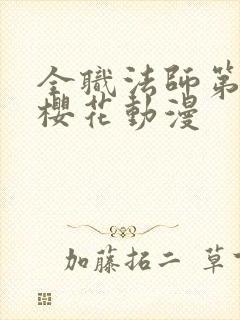 全職法師第
櫻花動漫
加藤拓二 草